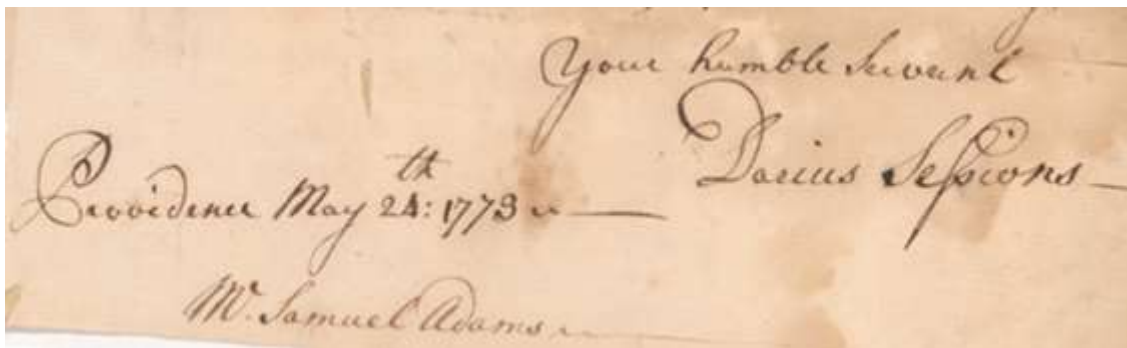 Your humble Servant
Darius Seſsions
Providence May 24:th 1773
Mr. Samuel Adams